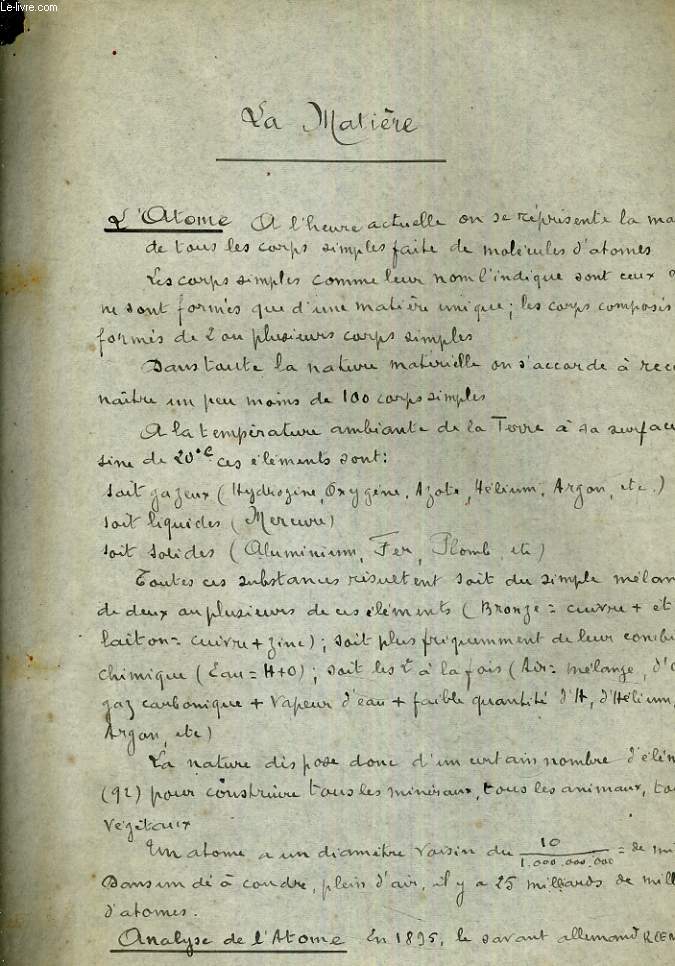 Le-livre.com
La Matière
L'Atome A l'heure actuelle on se réprésente la ma
de tous les corps simples faite de molécules d'atomes
Les corps simples comme leur nom l'indique sont ceux
ne sont formés que d'une matière unique; les corps composés
formés de 2 ou plusieurs corps simples
Dans toute la nature matérielle on s'accorde à reco
naître un peu moins de 100 corps simples
A la température ambiante de la Terre à sa surface
sine de 20°C ces éléments sont:
soit gazeux (Hydrogène, Oxygène, Azote, Hélium, Argon, etc.)
soit liquides (Mercure)
soit solides (Aluminium, Fer, Plomb, etc)
Toutes ces substances résultent soit du simple mélan
de deux ou plusieurs de ces éléments (Bronze = cuivre + ét
laiton = cuivre + zinc); soit plus fréquemment de leur combi
chimique (Eau = H+O); soit les 2 à la fois (Air = mélange, d'
gaz carbonique + vapeur d'eau + faible quantité d'H, d'Hélium,
Argon, etc)
La nature dispose donc d'un certain nombre d'élém
(92) pour construire tous les minéraux, tous les animaux, to
végétaux
Un atome a un diamètre voisin du 10/1.000.000.000 = de mi
Dans un dé à coudre, plein d'air, il y a 25 milliards de mill
d'atomes.
Analyse de l'Atome En 1895, le savant allemand